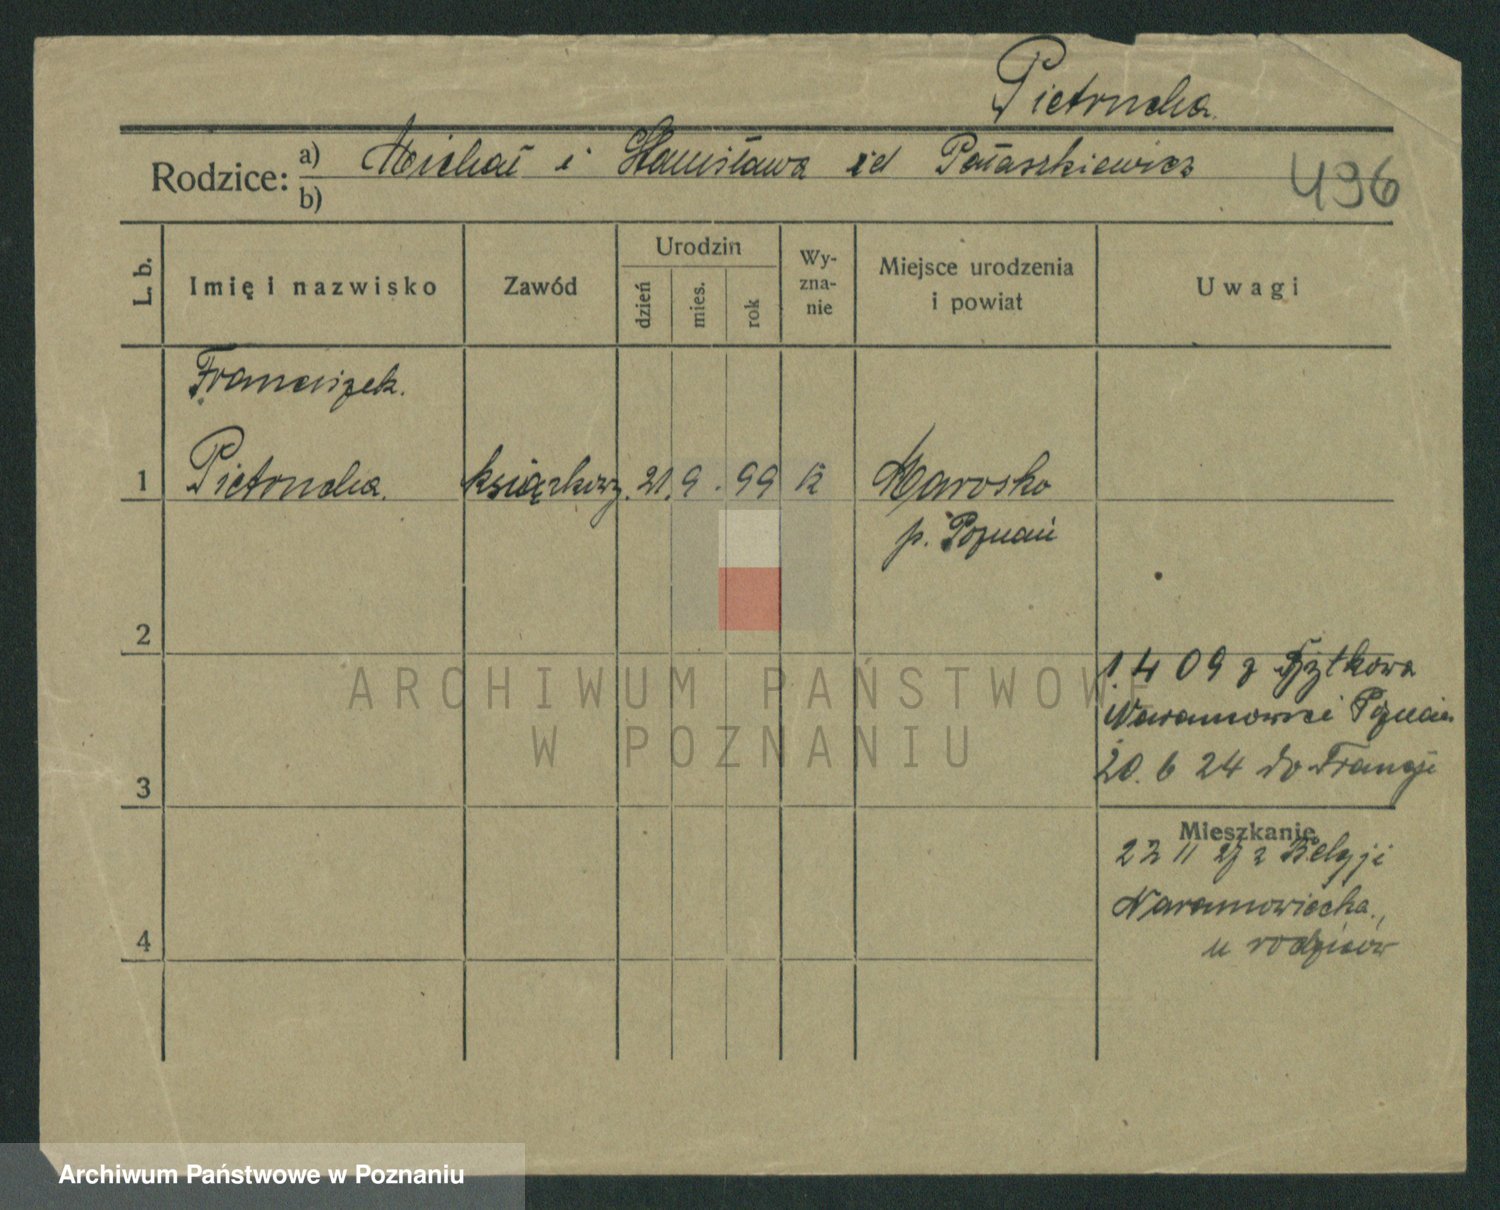 Pietrucha.
Rodzice: a) Michał i Stanisława id Pataszkiewicz
b)
496
L. b.
Imię i nazwisko
Zawód
Urodzin
dzień
mies.
rok
Wy-
zna-
nie
Miejsce urodzenia
i powiat
Uwagi
Franciszek.
1 Pietrucha. książkowy. 21. 9. 99 K Marosko
p. Poznań
2
1.4 09 z
Poznań
3 20. 6 24 do Francji
Mieszkanie
22 11 27 z Belgji
Naramowicka.,
u rodziców
4
ARCHIWUM PAŃSTWOWE
W POZNANIU
Archiwum Państwowe w Poznaniu